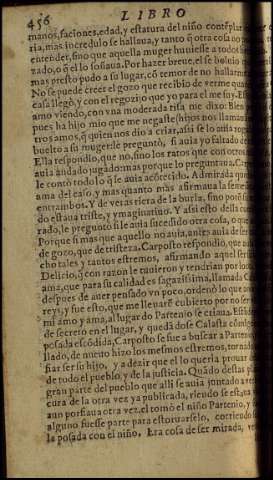 456 LIBRO
manos, faciones, edad, y estatura del niño contéplar
ria, mas incredulo se hallaua, y tanto q̃ otra cosa no
entender, sino que aquella muger huuiesse a todos
zado, o q̃ el lo soñaua. Por hazer breue, el se boluio
mas presto pudo a su lugar, cõ temor de no hallarse
No se puede creer el gozo que recibio de verme quan
casa llegò, y con el regozijo que yo para el me fuy. Esse
amo viendo, con vna moderada risa me dixo: Bien
pues ha hijo mio que me negasse hijos nos llamaua
tros amos, q̃ quien nos dio a criar, assi se lo auia roga
buelto a su muger le preguntò, si auia yo faltado de
Ella respondio, que no, sino los ratos que con otros
auia andado jugado: mas porque lo preguntaua. Carp
le contò todo lo q̃ le auia acõtecido. Admirada que
ama del caso, y mas quanto mas afirmaua la seme
entrambos. Y de veras riera de la burla, sino por
do estaua triste, y ymaginatiuo. Y assi ella
rado, le preguntò si le auia sucedido otra cosa, o que
Porque si mas que aquello no auia, antes auia de ser
de gozo, que de tristeza. Carposto respondio, que
cho tales y tantos estremos, afirmando aquel ser
Delicio, q̃ con razon le tuuieron y tendrian por loco
ama, que para su calidad es sagazissima, llamada C
despues de auer pensado vn poco, ordenò lo que
reys, y fue esto, que me lleuarẽ cubierto por no ser
mi amo y ama, al lugar do Partenio se criaua. Est
de secreto en el lugar, y quedãdose Calasta cõmigo
posada escõdida, Carposto se fue a buscar a Partenio
llado, de nueuo hizo los mesmos estremos, tornado
fiar ser su hijo, y a dezir que el lo queria prouar
de todo el pueblo, y de la justicia. Quãdo destas
gran parte del pueblo que alli se auia juntado a
cura de la otra vez ya publicada, riendo se estaua
aun porfiaua otra vez, el tomò el niño Partenio, y
alguno fuesse parte para estoruarselo, corriendo
la posada con el niño, Era cosa de ser mirada,